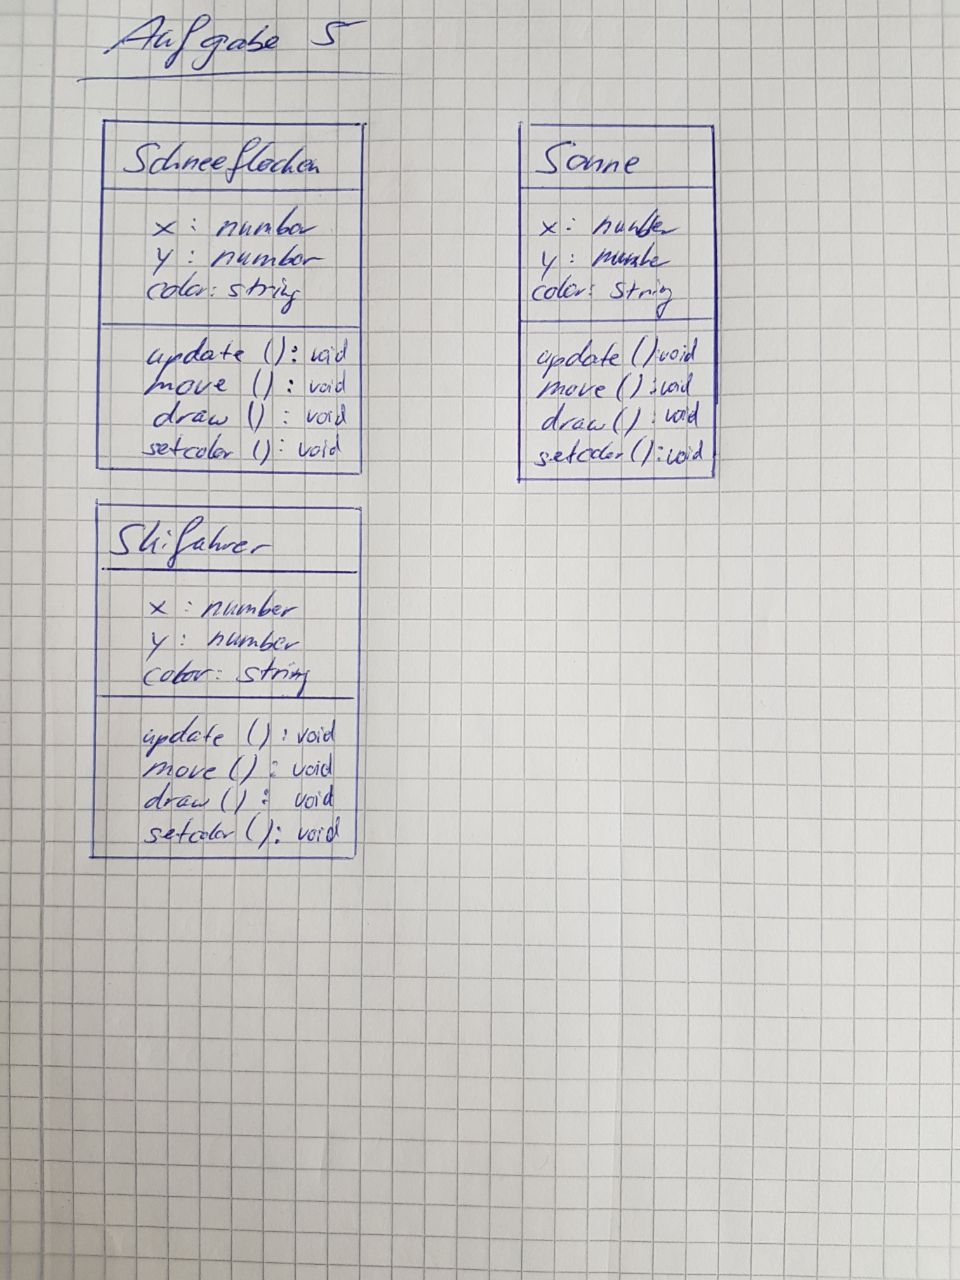 Aufgabe 5
Schneeflocken
x : number
y : number
color: string
update (): void
move () : void
draw () : void
setcolor (): void
Sonne
x : number
y : numbe
color: string
update (): void
move (): void
draw () : void
setcolor (): void
Skifahrer
x : number
y : number
color: string
update () : void
move () : void
draw () : void
setcolor (): void